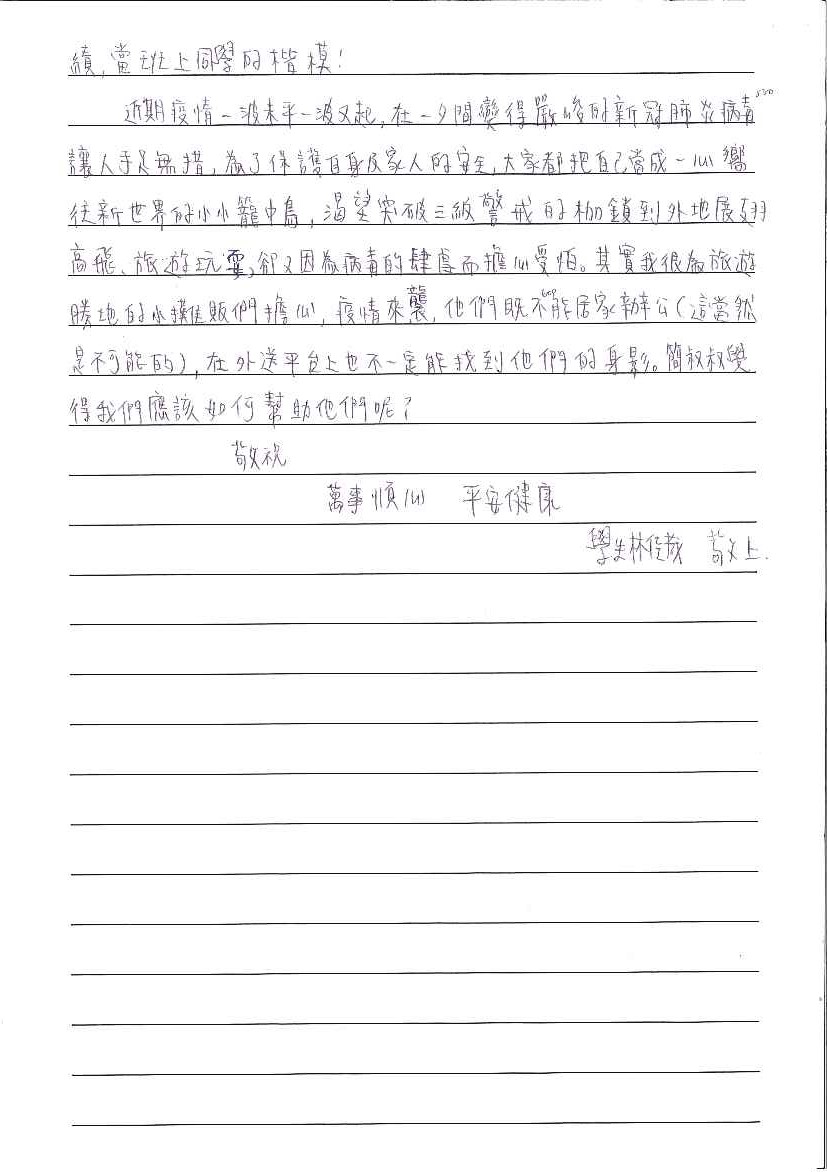 績,當班上同學的楷模!
近期疫情一波未平一波又起,在一夕間變得嚴峻的新冠肺炎病毒
500
讓人手足無措,為了保護自身及家人的安全,大家都把自己當成一心嚮
往新世界的小小籠中鳥,渴望突破三級警戒的枷鎖到外地展翅
高飛、旅遊玩耍,卻又因為病毒的肆虐而擔心受怕。其實我很為旅遊
勝地的小攤販們擔心,疫情來襲,他們既不能居家辦公(這當然
600
是不可能的),在外送平台上也不一定能找到他們的身影。簡叔叔覺
得我們應該如何幫助他們呢?
敬祝
萬事順心 平安健康
學生林 敬上.